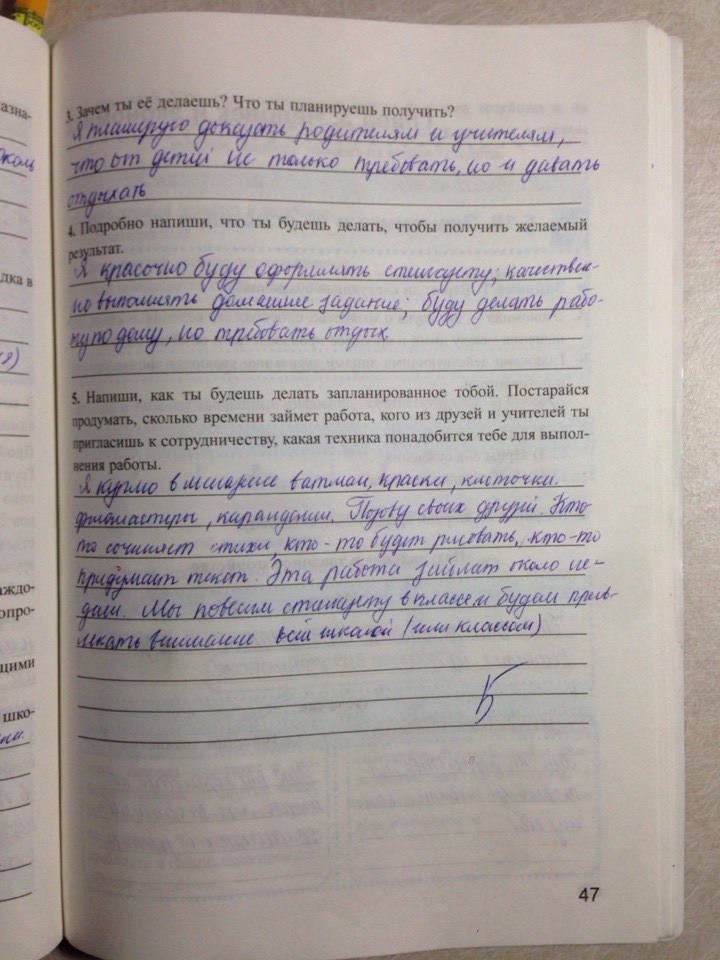 3. Зачем ты её делаешь? Что ты планируешь получить?
Я планирую доказать родителям и учителям,
что от детей не только требовать, но и давать
отдыхать
4. Подробно напиши, что ты будешь делать, чтобы получить желаемый
результат.
Я красочно буду оформлять стенгазету; качествен-
но выполнять домашние задание; буду делать рабо-
ту по дому, но требовать отдых.
5. Напиши, как ты будешь делать запланированное тобой. Постарайся
продумать, сколько времени займет работа, кого из друзей и учителей ты
пригласишь к сотрудничеству, какая техника понадобится тебе для выпол-
нения работы.
Я куплю в магазине ватман, краски, кисточки.
фломастеры, карандаши. Позову своих друзей. Кто-
то сочиняет стихи, кто-то будет рисовать, кто-то
придумает текст. Эта работа займет около не-
дели. Мы повесим стенгазету в классе и будем прив-
лекать внимание всей школой (или классом)
Б
47
азна-
дка в
аждо-
опро-
щими
шко-